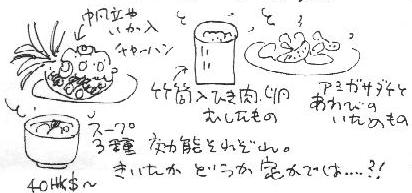 帆立や
いか入
チャーハン
竹筒入ひき肉
むしたもの
アミガサダケと
あわびの
いためもの
スープ
3種 効能それぞれ。
きいたか どうか 定かでは....?!
40HK$〜